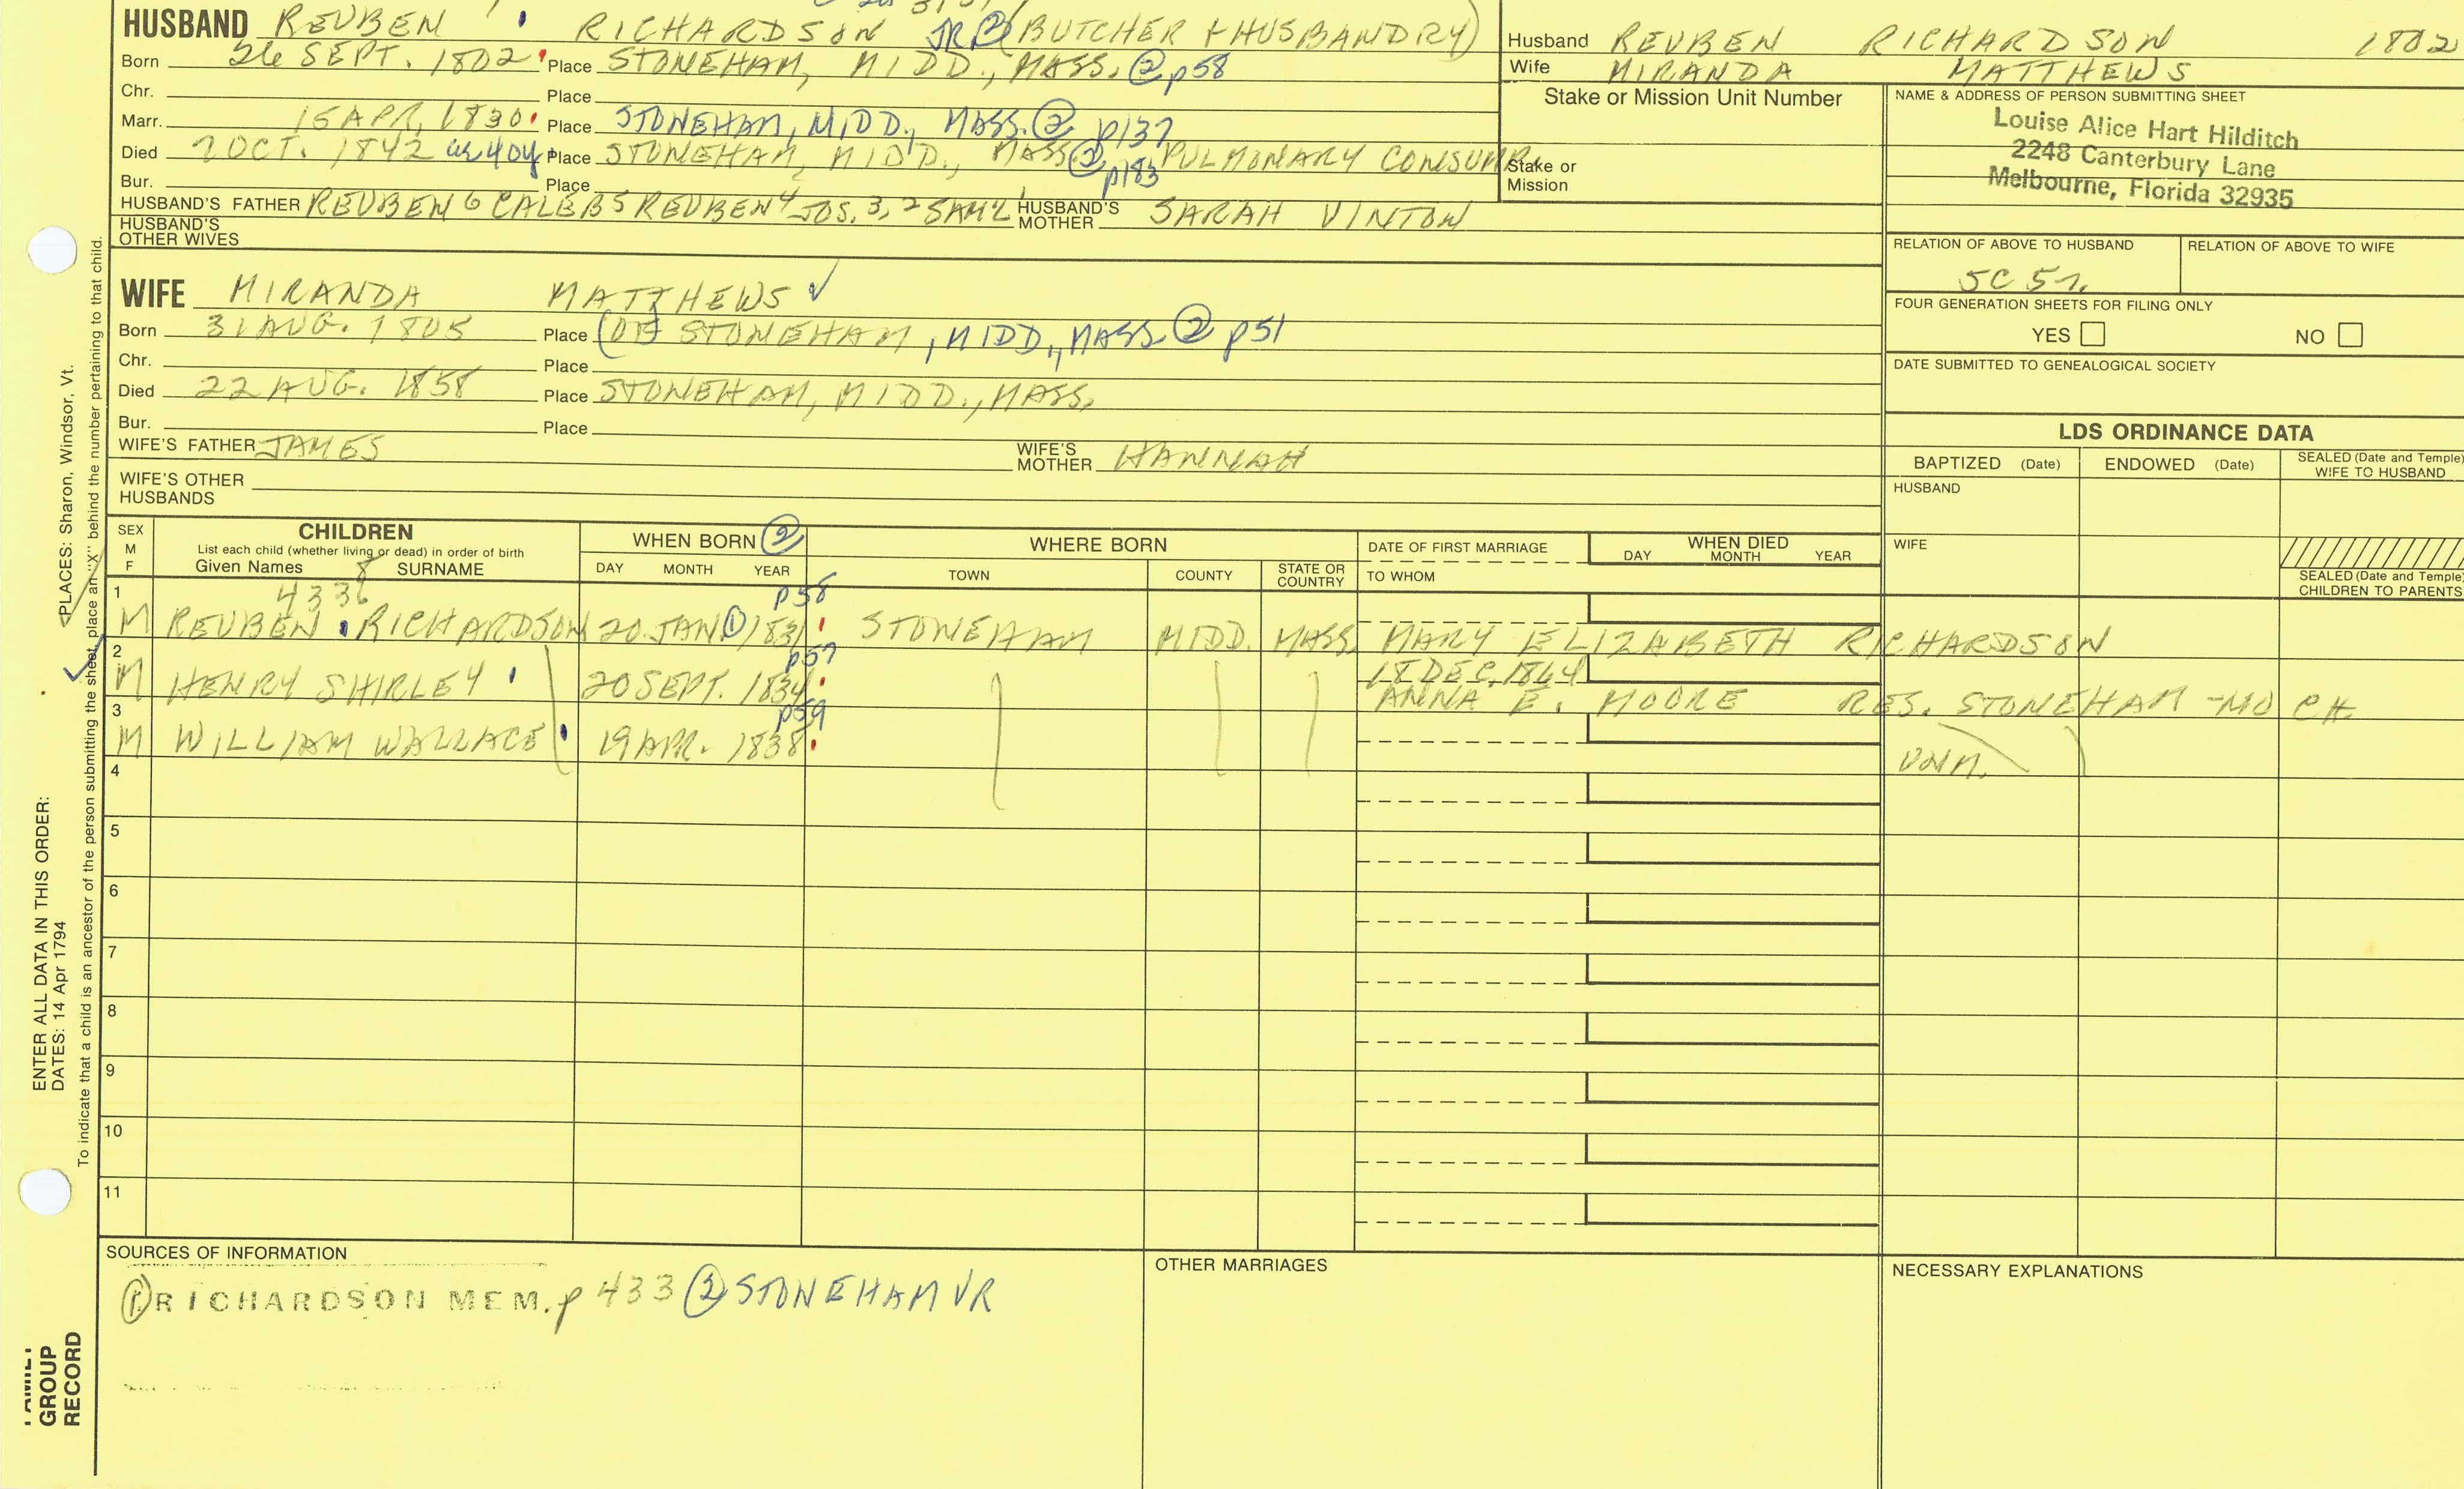 HUSBAND REUBEN RICHARDSON JR ② (BUTCHER + HUSBANDRY)
Born 26 SEPT. 1802 Place STONEHAM, MIDD., MASS. ② p58
Chr. Place
Marr. 15 APR. 1830 Place STONEHAM, MIDD., MASS. ② p137
Died 7 OCT. 1842 ae 40y Place STONEHAM, MIDD., MASS ② p183 PULMONARY CONSUMP.
Bur. Place
HUSBAND'S FATHER REUBEN 6 CALEB 5 REUBEN 4 JOS. 3, 2 SAM'L HUSBAND'S MOTHER SARAH VINTON
HUSBAND'S OTHER WIVES
Husband REUBEN RICHARDSON 1802
Wife MIRANDA MATTHEWS
Stake or Mission Unit Number
Stake or Mission
NAME & ADDRESS OF PERSON SUBMITTING SHEET
Louise Alice Hart Hilditch
2248 Canterbury Lane
Melbourne, Florida 32935
RELATION OF ABOVE TO HUSBAND RELATION OF ABOVE TO WIFE
5C 5r.
FOUR GENERATION SHEETS FOR FILING ONLY
YES NO
DATE SUBMITTED TO GENEALOGICAL SOCIETY
WIFE MIRANDA MATTHEWS ✓
Born 31 AUG. 1805 Place (OF) STONEHAM, MIDD., MASS ② p51
Chr. Place
Died 22 AUG. 1858 Place STONEHAM, MIDD., MASS.
Bur. Place
WIFE'S FATHER JAMES WIFE'S MOTHER HANNAH
WIFE'S OTHER HUSBANDS
LDS ORDINANCE DATA
BAPTIZED (Date) ENDOWED (Date) SEALED (Date and Temple) WIFE TO HUSBAND
HUSBAND
WIFE
SEALED (Date and Temple) CHILDREN TO PARENTS
SEX M F CHILDREN WHEN BORN ② WHERE BORN DATE OF FIRST MARRIAGE WHEN DIED
List each child (whether living or dead) in order of birth
Given Names SURNAME DAY MONTH YEAR TOWN COUNTY STATE OR COUNTRY TO WHOM DAY MONTH YEAR
8
4336 p58
1 M REUBEN RICHARDSON 20 JAN ① 1831 STONEHAM MIDD. MASS. MARY ELIZABETH RICHARDSON
p57 18 DEC. 1864
2 M HENRY SHIRLEY 20 SEPT. 1834 ANNA E. MOORE RES. STONEHAM - NO CH.
p59
3 M WILLIAM WALLACE 19 APR. 1838 UNM.
4
5
6
7
8
9
10
11
SOURCES OF INFORMATION
① RICHARDSON MEM. p 433 ② STONEHAM VR
OTHER MARRIAGES
NECESSARY EXPLANATIONS
PLACES: Sharon, Windsor, Vt.
ENTER ALL DATA IN THIS ORDER:
DATES: 14 Apr 1794
To indicate that a child is an ancestor of the person submitting the sheet, place an "X" behind the number pertaining to that child.
FAMILY GROUP RECORD